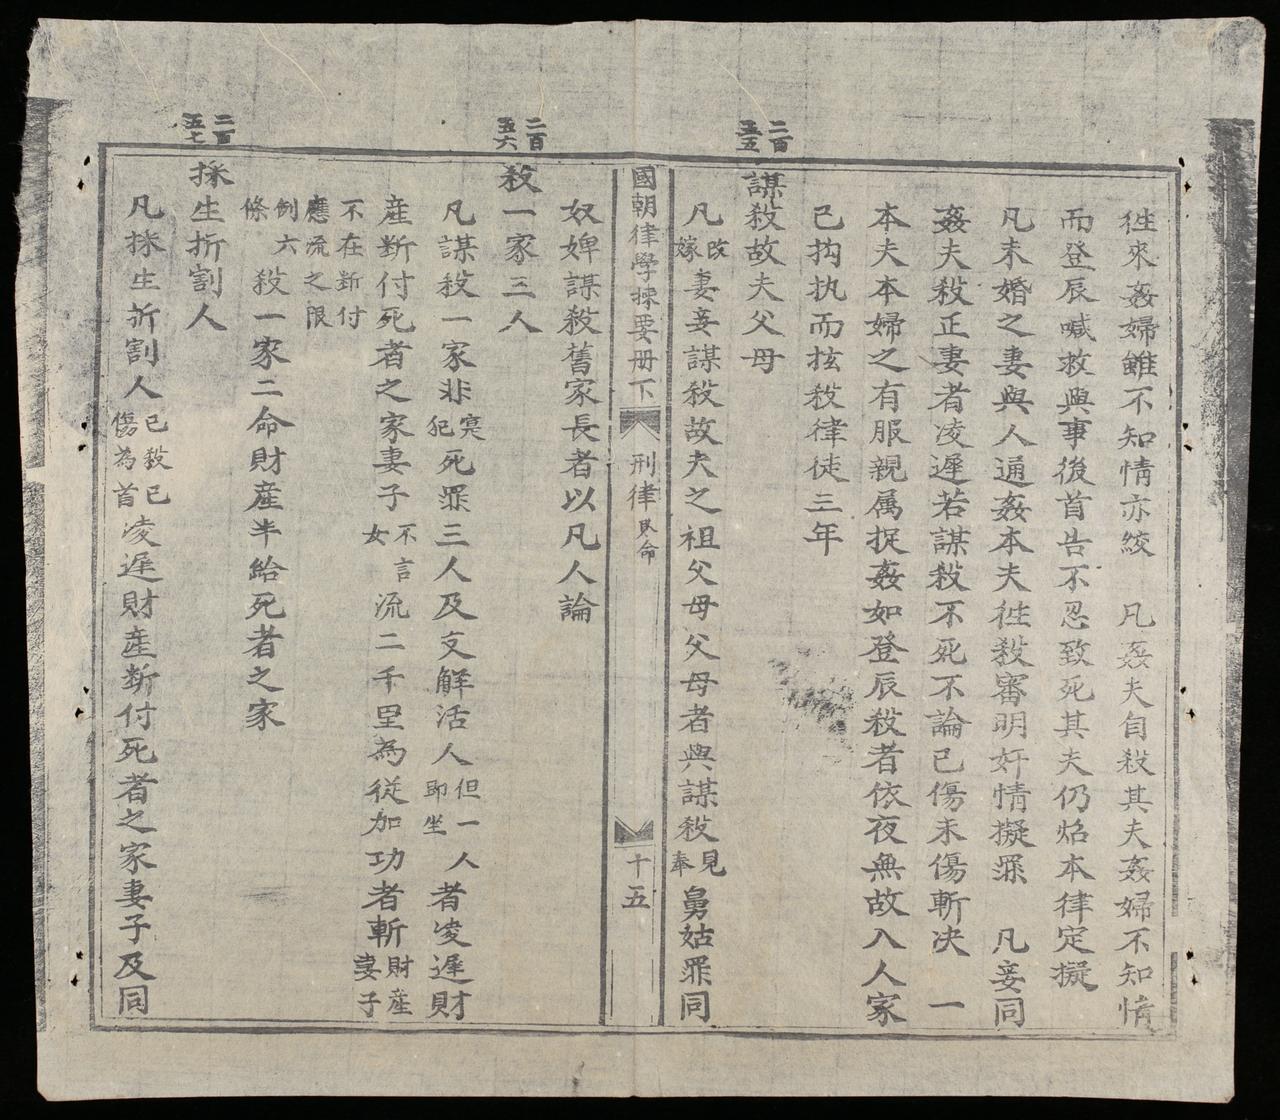 徃來姦婦雖不知情亦絞　凡姦夫自殺其夫姦婦不知情
而登辰喊救與事後首告不忍致死其夫仍炤本律定擬
凡未婚之妻與人通姦本夫徃殺審明奸情擬罪　凡妾同
姦夫殺正妻者凌遲若謀殺不死不論已傷未傷斬决　一
本夫本婦之有服親属捉姦如登辰殺者依夜無故入人家
已拘执而㧓殺律徒三年
二百五五
謀殺故夫父母
凡改嫁妻妾謀殺故夫之祖父母父母者與謀殺見奉舅姑罪同
國朝律學揀要册下　刑律　人命　十五
奴婢謀殺舊家長者以凡人論
二百五六
殺一家三人
凡謀殺一家非寔犯死罪三人及支解活人但一人即坐者凌遲財
産斷付死者之家妻子不言女流二千里為從加功者斬財産妻子
不在斷付應流之限
例六條殺一家二命財産半給死者之家
二百五七
採生折割人
凡採生折割人已殺已傷為首凌遲財産斷付死者之家妻子及同